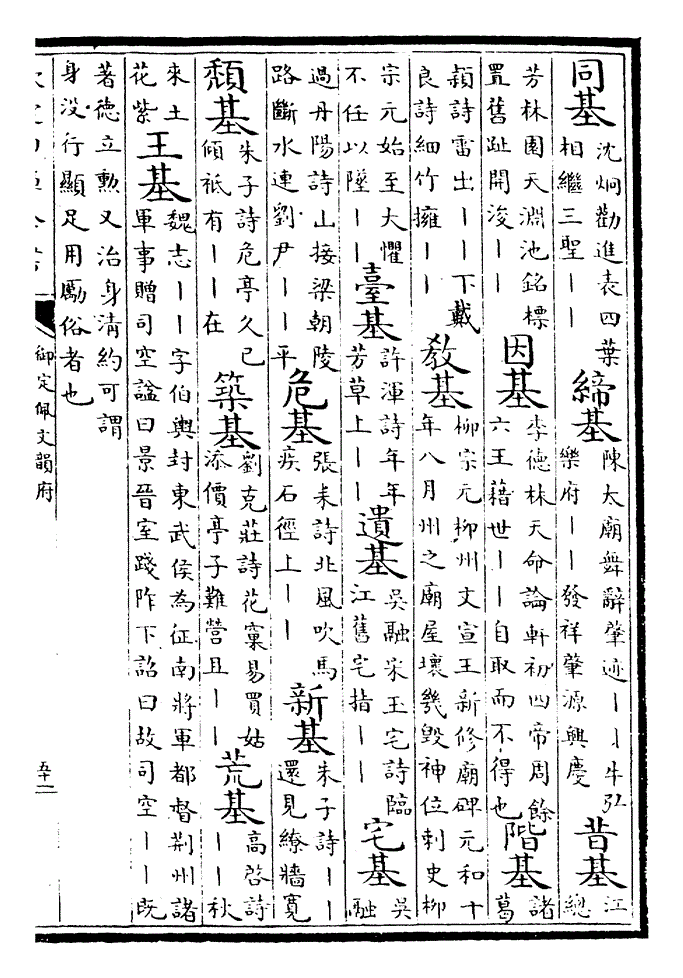 同基沈炯勸進表四葉相繼三聖丨丨締基陳太廟舞辭肇迹丨丨牛弘樂府丨丨發祥肇源興慶昔基江總
芳林園天淵池銘標置舊趾開浚丨丨因基李德林天命論軒初四帝周餘六王藉世丨丨自取而不得也階基諸葛
穎詩雷出丨丨下戴良詩細竹擁丨丨教基柳宗元柳州文宣王新修廟碑元和十年八月州之廟屋壞幾毀神位刺史柳
宗元始至大懼不任以墜丨丨臺基許渾詩年年芳草上丨丨遺基吳融宋玉宅詩臨江舊宅指丨丨宅基吳融
過丹陽詩山接梁朝陵路斷水連劉尹丨丨平危基張耒詩北風吹馬疾石徑上丨丨新基朱子詩丨丨還見繚牆寬
頹基朱子詩危亭久已傾祇有丨丨在築基劉克莊詩花窠易買姑添價亭子難營且丨丨荒基高啓詩丨丨秋
來土花紫王基魏志丨丨字伯輿封東武侯為征南將軍都督荊州諸軍事贈司空諡曰景晉室踐阼下詔曰故司空丨丨既
著德立勳又治身清約可謂身没行顯足用勵俗者也
御定佩文韻府